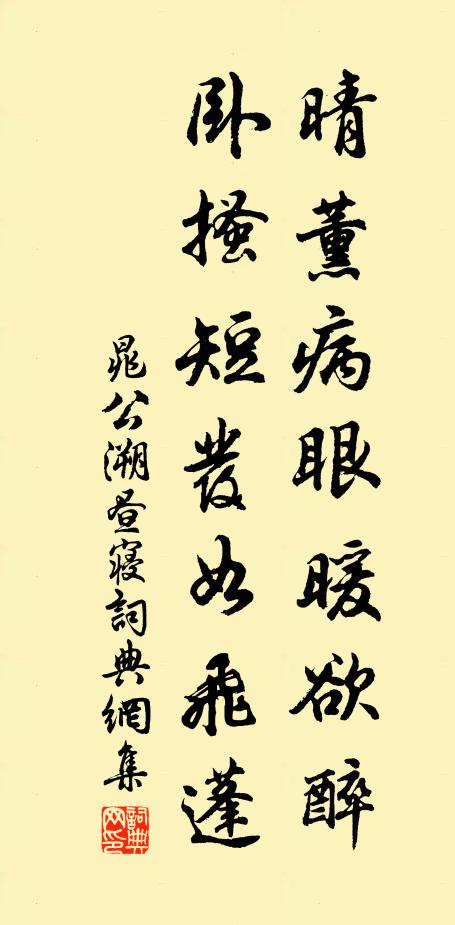 晴薰病眼暖欲醉
卧搔短發如飛蓬
晁公溯昼寝詞典網集
詞典網印